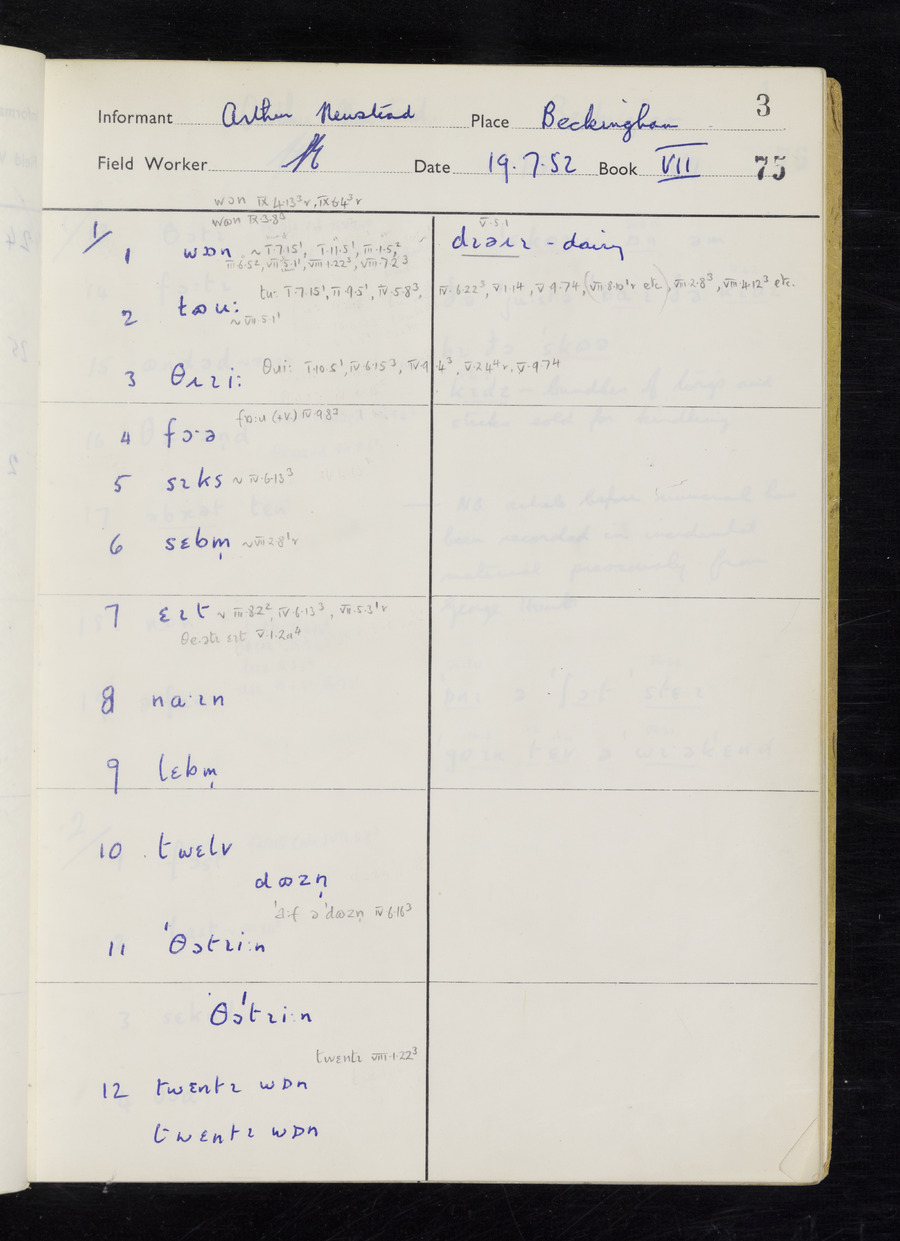 3
Informant Arthur Newstead Place Beckingham
Field Worker Date 19.7.52 Book VII 75
wɒn IX.4.13³r, IX.6.4³r
wɒn IX.3.8³
1/ 1 wɒn ~ I.7.15¹, I.11.5¹, III.1.5²
III.6.5², VII.5.1¹, VIII.1.22³, VIII.7.2³
V.5.1
dɪəɹɪ - dairy
2 tɷu: tu: I.7.15¹, II.9.5¹, IV.5.8³, IV.6.22³, V.1.14, V.9.74, (VII.8.10¹r etc), VIII.2.8³, VIII.4.12³ etc.
~ VII.5.1¹
3 θɹɪi: θɹi: I.10.5¹, IV.6.15³, IV.9.4³, V.2.4⁴r, V.9.74
4 fɔ·ə fɔ:ɹ (+V.) IV.9.8³
5 sɪks ~ IV.6.13³
6 sɛbm̩ ~ VII.2.8¹r
7 ɛɪt ~ III.8.2², IV.6.13³, VII.5.3¹r
ɛɪt V.1.2a⁴
8 na·ɪn
9 lɛbm̩
10 twɛlv
dɷzn̩
'a:f ə 'dɷzn̩ IV.6.16³
11 'θətɪi:n
θə'tɪi:n
twɛntɪ VIII.1.22³
12 twɛntɪ wɒn
twɛntɪ wɒn